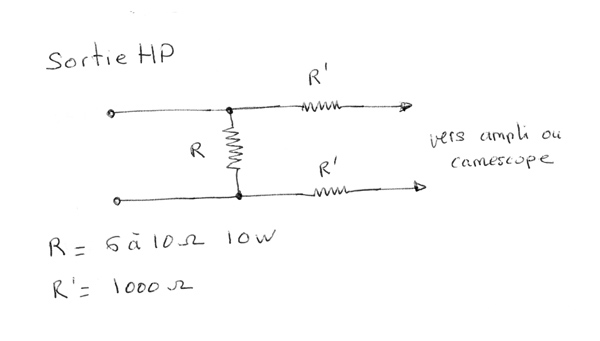 Sortie HP
R'
R
R'
vers ampli ou
camescope
R = 6 à 10 Ω 10W
R' = 1000 Ω